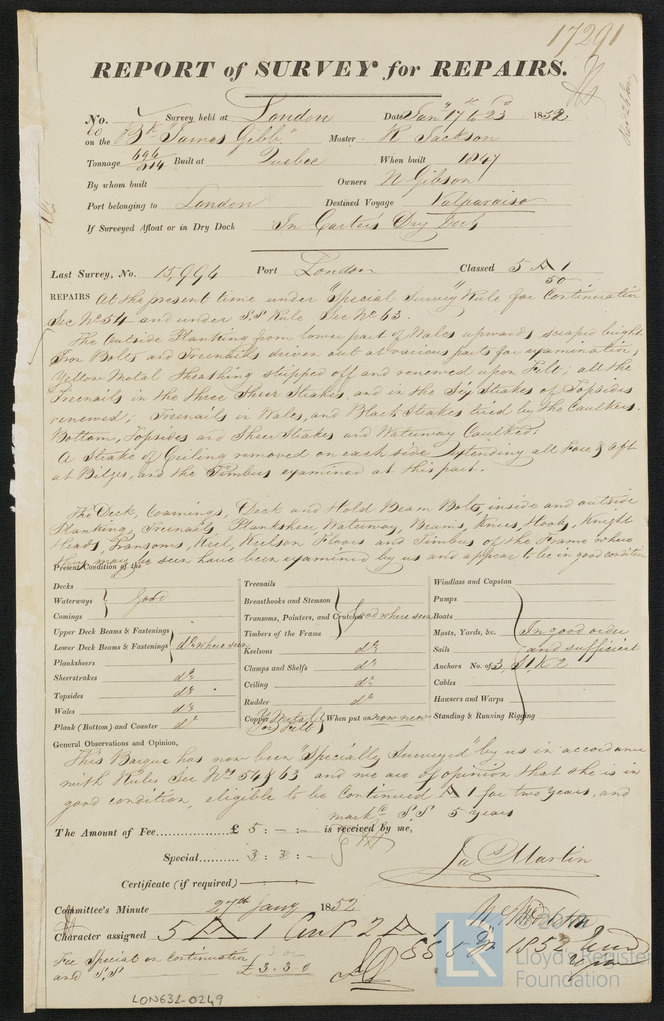 17291
REPORT of SURVEY for REPAIRS.
No. Survey held at London Date Jany 17th to 23d 1852
on the Bk "James Gibb" Master R Jackson
Tonnage 696 Built at Quebec When built 1847
By whom built Owners N Gibson
Port belonging to London Destined Voyage Valparaiso
If Surveyed Afloat or in Dry Dock In Carter's Dry Dock
Last Survey, No. 15,994 Port London Classed 5 A 1
50
REPAIRS At the present time under "Special Survey" Rule for Continuation
Sec No 54 and under S.S Rule Sec No 63.
The Outside Planking from lower part of Wales upwards scraped bright
Iron Bolts and Treenails driven out at various parts for examination,
Yellow Metal Sheathing stripped off and renewed upon Felt; all the
Treenails in the three Sheer Strakes, and in the Six Strakes of Topsides
renewed; Treenails in Wales, and Black Strakes tried by the Caulkers.
Bottom, Topsides and Sheer Strakes and Waterway Caulked.
A Strake of Ceiling removed on each side extending all Fore & Aft
at Bilges, and the Timbers examined at this part.
The Deck, Coamings, Deck and Hold Beam Bolts, inside and outside
Planking, Treenails, Plankshear Waterway, Beams, Knees, Hooks, Knight
Heads, Transoms, Keel, Keelson Floors and Timbers of the Frame where
they may be seen have been examined by us and appear to be in good condition
Present Condition of the
Decks
Waterways Good
Comings
Upper Deck Beams & Fastenings
Lower Deck Beams & Fastenings do where seen
Planksheers
Sheerstrakes do
Topsides do
Wales do
Plank (Bottom) and Counter do
Treenails
Breasthooks and Stemson
Transoms, Pointers, and Crutches Good where seen
Timbers of the Frame
Keelsons do
Clamps and Shelfs do
Ceiling do
Rudder do
Copper Y Metal on Felt When put on now new
Windlass and Capstan
Pumps
Boats
Masts, Yards, &c. In good order
Sails and sufficient
Anchors No. of 3, S1, K2
Cables
Hawsers and Warps
Standing & Running Rigging
General Observations and Opinion,
This Barque has now been "Specially Surveyed" by us in accordance
with Rules Sec Nos 54 & 63 and we are of opinion that she is in
good condition, eligible to be Continued A 1 for two years, and
marked S.S 5 years
The Amount of Fee £ 5 : - : - is received by me,
Special 3 : 3 : -
Jas Martin
Certificate (if required)
Committee's Minute 27th Jany 1852
Character assigned 5 A 1 Cont 2 A 1
SS 5 yrs 1852
Fee Special on Continuation
and S.S £3.3.0
LON631-0249
LR
Lloyd's Register
Foundation